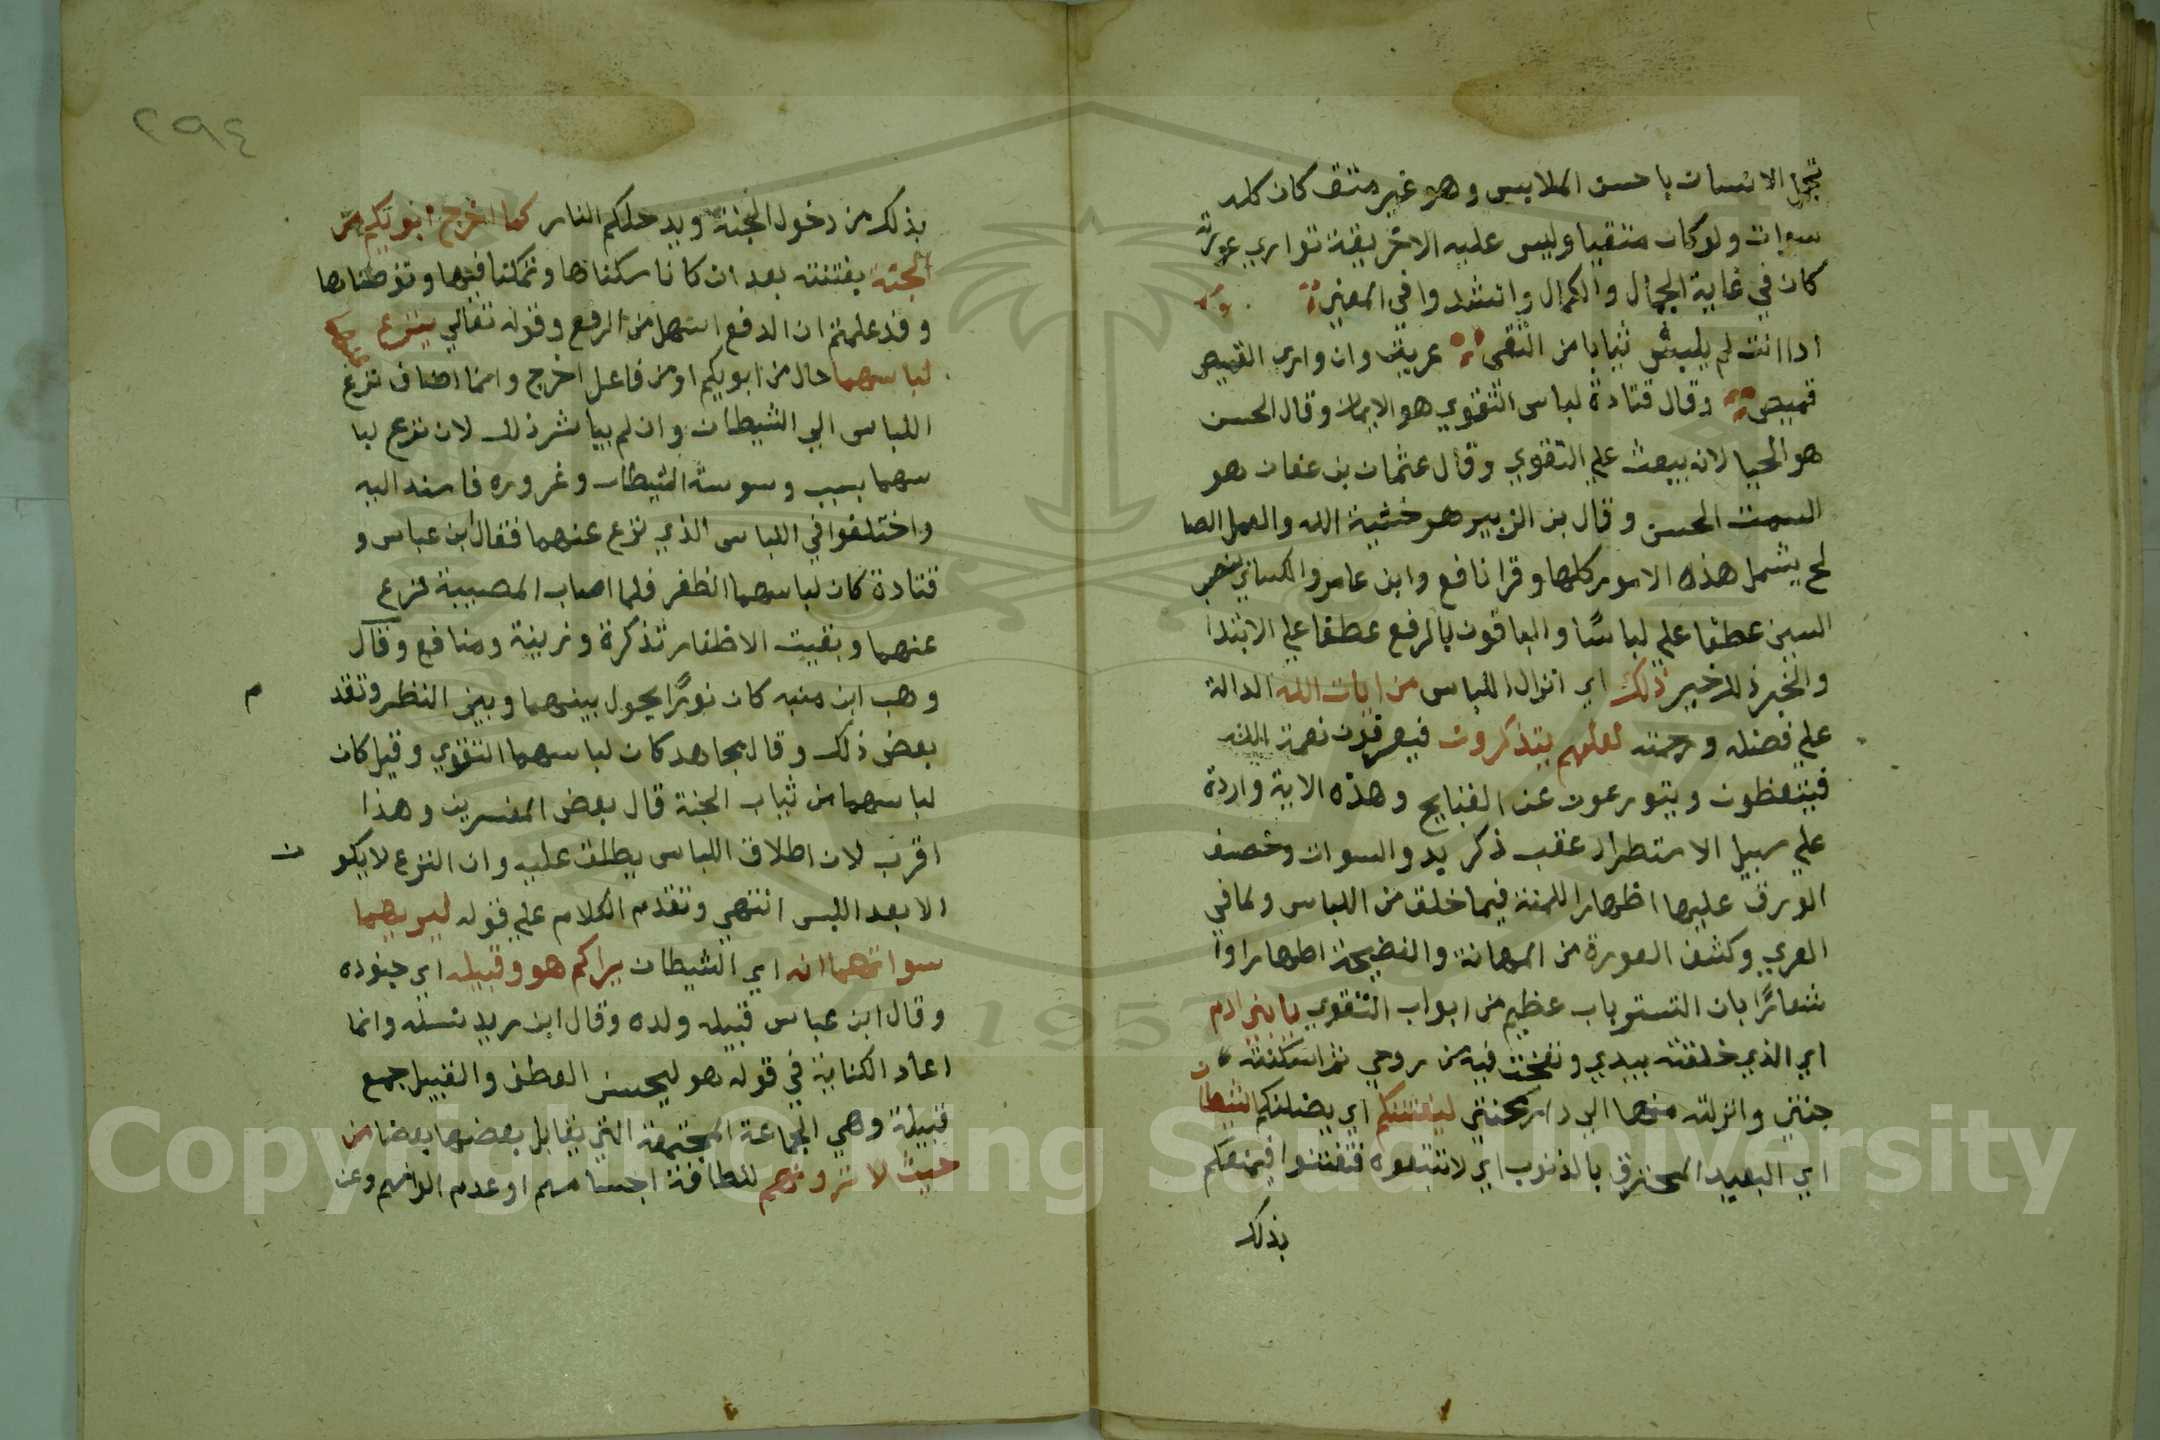 تجمل الانسان باحسن الملابس وهو غير متق كان كله
سوات ولو كان متقيا وليس عليه الاخريقة تواري عورته
كان في غاية الجمال والكمال وانشدوا في المعني
اذا انت لم يلبس ثيابا من التقي عريت وان واري القميص
قميص وقال قتادة لباس التقوي هو الايمان وقال الحسن
هو الحيا لانه يبعث علي التقوي وقال عثمان بن عفان هو
السمت الحسن وقال بن الزبير هو خشية الله والعمل الصا
لح يشمل هذه الامور كلها وقرا نافع وابن عامر والكساني بنصب
السين عطفا علي لباسًا والباقون بالرفع عطفا علي الابتدا
والخبر ذلك خير ذلك اي انزال اللباس من ايات الله الدالة
علي فضله ورحمته لعلهم يتذكرون فيعرفون نعمة الله
فيتعظون ويتورعون عن القبايح وهذه الاية واردة
علي سبيل الاستطراد عقب ذكر بدو السوات وخصف
الورق عليها اظهارا للمنة فيما خلق من اللباس ولما في
العري وكشف العورة من المهانة والفضيحة اظهارا وا
شعارًا بان التستر باب عظيم من ابواب التقوي يا بني ادم
اي الذي خلقته بيدي ونفخت فيه من روحي ثم اسكنته
جنتي وانزلته منها الي دار محنتي ليفتننكم اي يضلنكم الشيطان
اي البعيد المحترق بالذنوب اي لا تتبعوه فتفتنوا فيمنعكم
بذلك
٢٩٤
بذلك من دخول الجنة ويدخلكم النار كما اخرج ابويكم من
الجنة بفتنته بعد ان كانا سكناها وتمكنا فيها وتوطناها
وقد علمتم ان الدفع اسهل من الرفع وقوله تعالي ينزع عنهما
لباسهما حال من ابويكم او من فاعل اخرج وانما اضاف نزع
اللباس الي الشيطان وان لم يباشر ذلك لان نزع لبا
سهما بسبب وسوسة الشيطان وغروره فاسند اليه
واختلفوا في اللباس الذي نزع عنهما فقال ابن عباس و
قتادة كان لباسهما الظفر فلما اصاب المصيبة نزع
عنهما وبقيت الاظفار تذكرة وزينة ومنافع وقال
وهب ابن منبه كان نورًا يحول بينهما وبين النظر وتقد م
بعض ذلك وقال مجاهد كان لباسهما التقوي وقيل كان
لباسهما من ثياب الجنة قال بعض المفسرين وهذا
اقرب لان اطلاق اللباس يطلق عليه وان النزع لا يكو ن
الا بعد اللبس انتهي وتقدم الكلام علي قوله ليريهما
سواتهما انه اي الشيطان يراكم هو وقبيله اي جنوده
وقال ابن عباس قبيله ولده وقال ابن زيد نسله وانما
اعاد الكناية في قوله هو ليحسن العطف والقبيل جمع
قبيلة وهي الجماعة المجتمعة التي يقابل بعضها بعضا من
حيث لا ترونهم للطافة اجسامهم او عدم الوانهم وعن
Copyright © King Saud University
1957